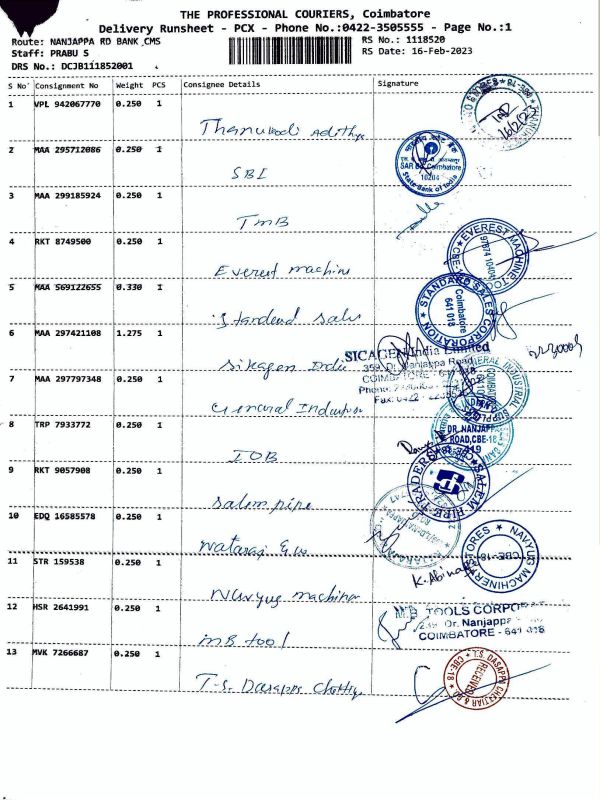 THE PROFESSIONAL COURIERS, Coimbatore
Delivery Runsheet - PCX - Phone No.:0422-3505555 - Page No.:1
Route: NANJAPPA RD BANK ,CMS
RS No.: 1118520
Staff: PRABU S
RS Date: 16-Feb-2023
DRS No.: DCJB111852001
S No Consignment No Weight PCS Consignee Details Signature
1 VPL 942067770 0.250 1
2 MAA 295712086 0.250 1 SBI
SAR Coimbatore
10204
State Bank of India
3 MAA 299185924 0.250 1 TMB
4 RKT 8749500 0.250 1 Everest machine
EVEREST MACHINE TOO
5 MAA 569122655 0.330 1 Standend sales
STANDARD SALES CORPORATION
Coimbatore
641 018
6 MAA 297421108 1.275 1 Sikagen India
SICAGEN India Limited
Nanjappa Road
7 MAA 297797348 0.250 1 General Industrian
GENERAL INDUSTRIAL SUPPL
8 TRP 7933772 0.250 1 IOB
DR. NANJAPP
ROAD, CBE-18
9 RKT 9057908 0.250 1 Salem pipe
SALEM PIPE TRADERS
10 EDQ 16585578 0.250 1 Nataraj
11 STR 159538 0.250 1 Navyug machiner
K. Abinaya
NAVYUG MACHINERY STORES
CBE-18
12 HSR 2641991 0.250 1 MB tool
MB TOOLS CORPOR
Dr. Nanjappa
COIMBATORE - 641 018
13 MVK 7266687 0.250 1 T-S. Dasappa Chettiya
T.S. DASAPPA CHETTIAR &
RECEIVED
CBE-18